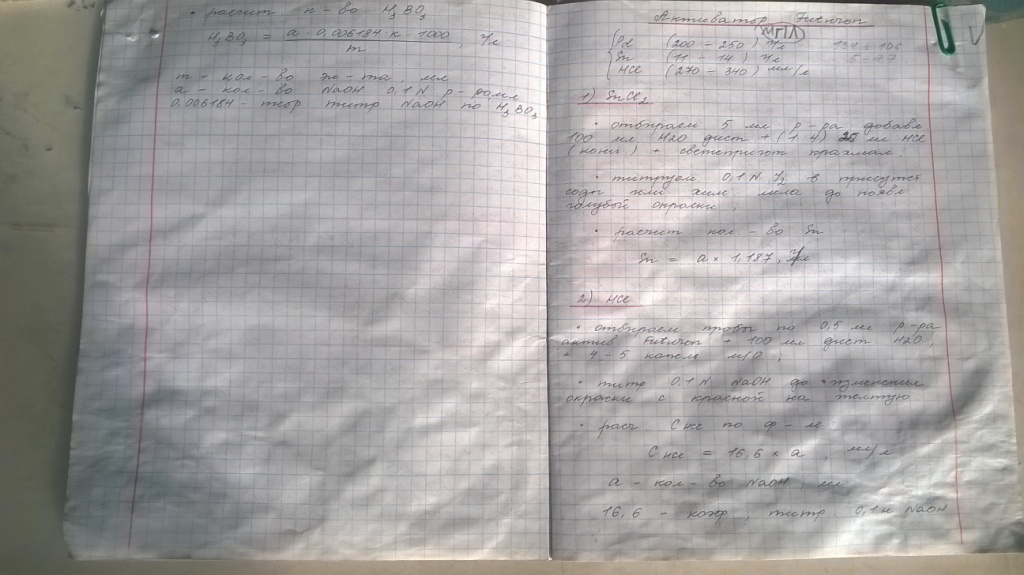 • расчит к-во H3BO3
H3BO3 = a · 0,006184 · к · 1000 / m , г/л
m - кол-во эл-та, мл
a - кол-во NaOH 0,1 N р-ра мл
0,006184 - теор титр NaOH по H3BO3
Активатор Futuron
МПП
Pd (200 - 250) г/л
Sn (11 - 14) г/л
HCl (270 - 340) мл/л
1) SnCl2
• отбираем 5 мл р-ра добавл
100 мл H2O дист + (1:4) 25 мл HCl
(конц.) + свежепригот крахмал.
• титруем 0,1 N J2 в присутст
соды или хим мела до появл
голубой окраски;
• расчит кол-во Sn
Sn = a × 1,187, г/л
2) HCl
• отбираем пробы по 0,5 мл р-ра
актив Futuron + 100 мл дист H2O,
+ 4 - 5 капель м/о;
• титр 0,1 N NaOH до изменения
окраски с красной на желтую
• расч CHCl по ф-ле
CHCl = 16,6 × a, мл/л
a - кол-во NaOH, мл
16,6 - коэф, титр 0,1 н NaOH